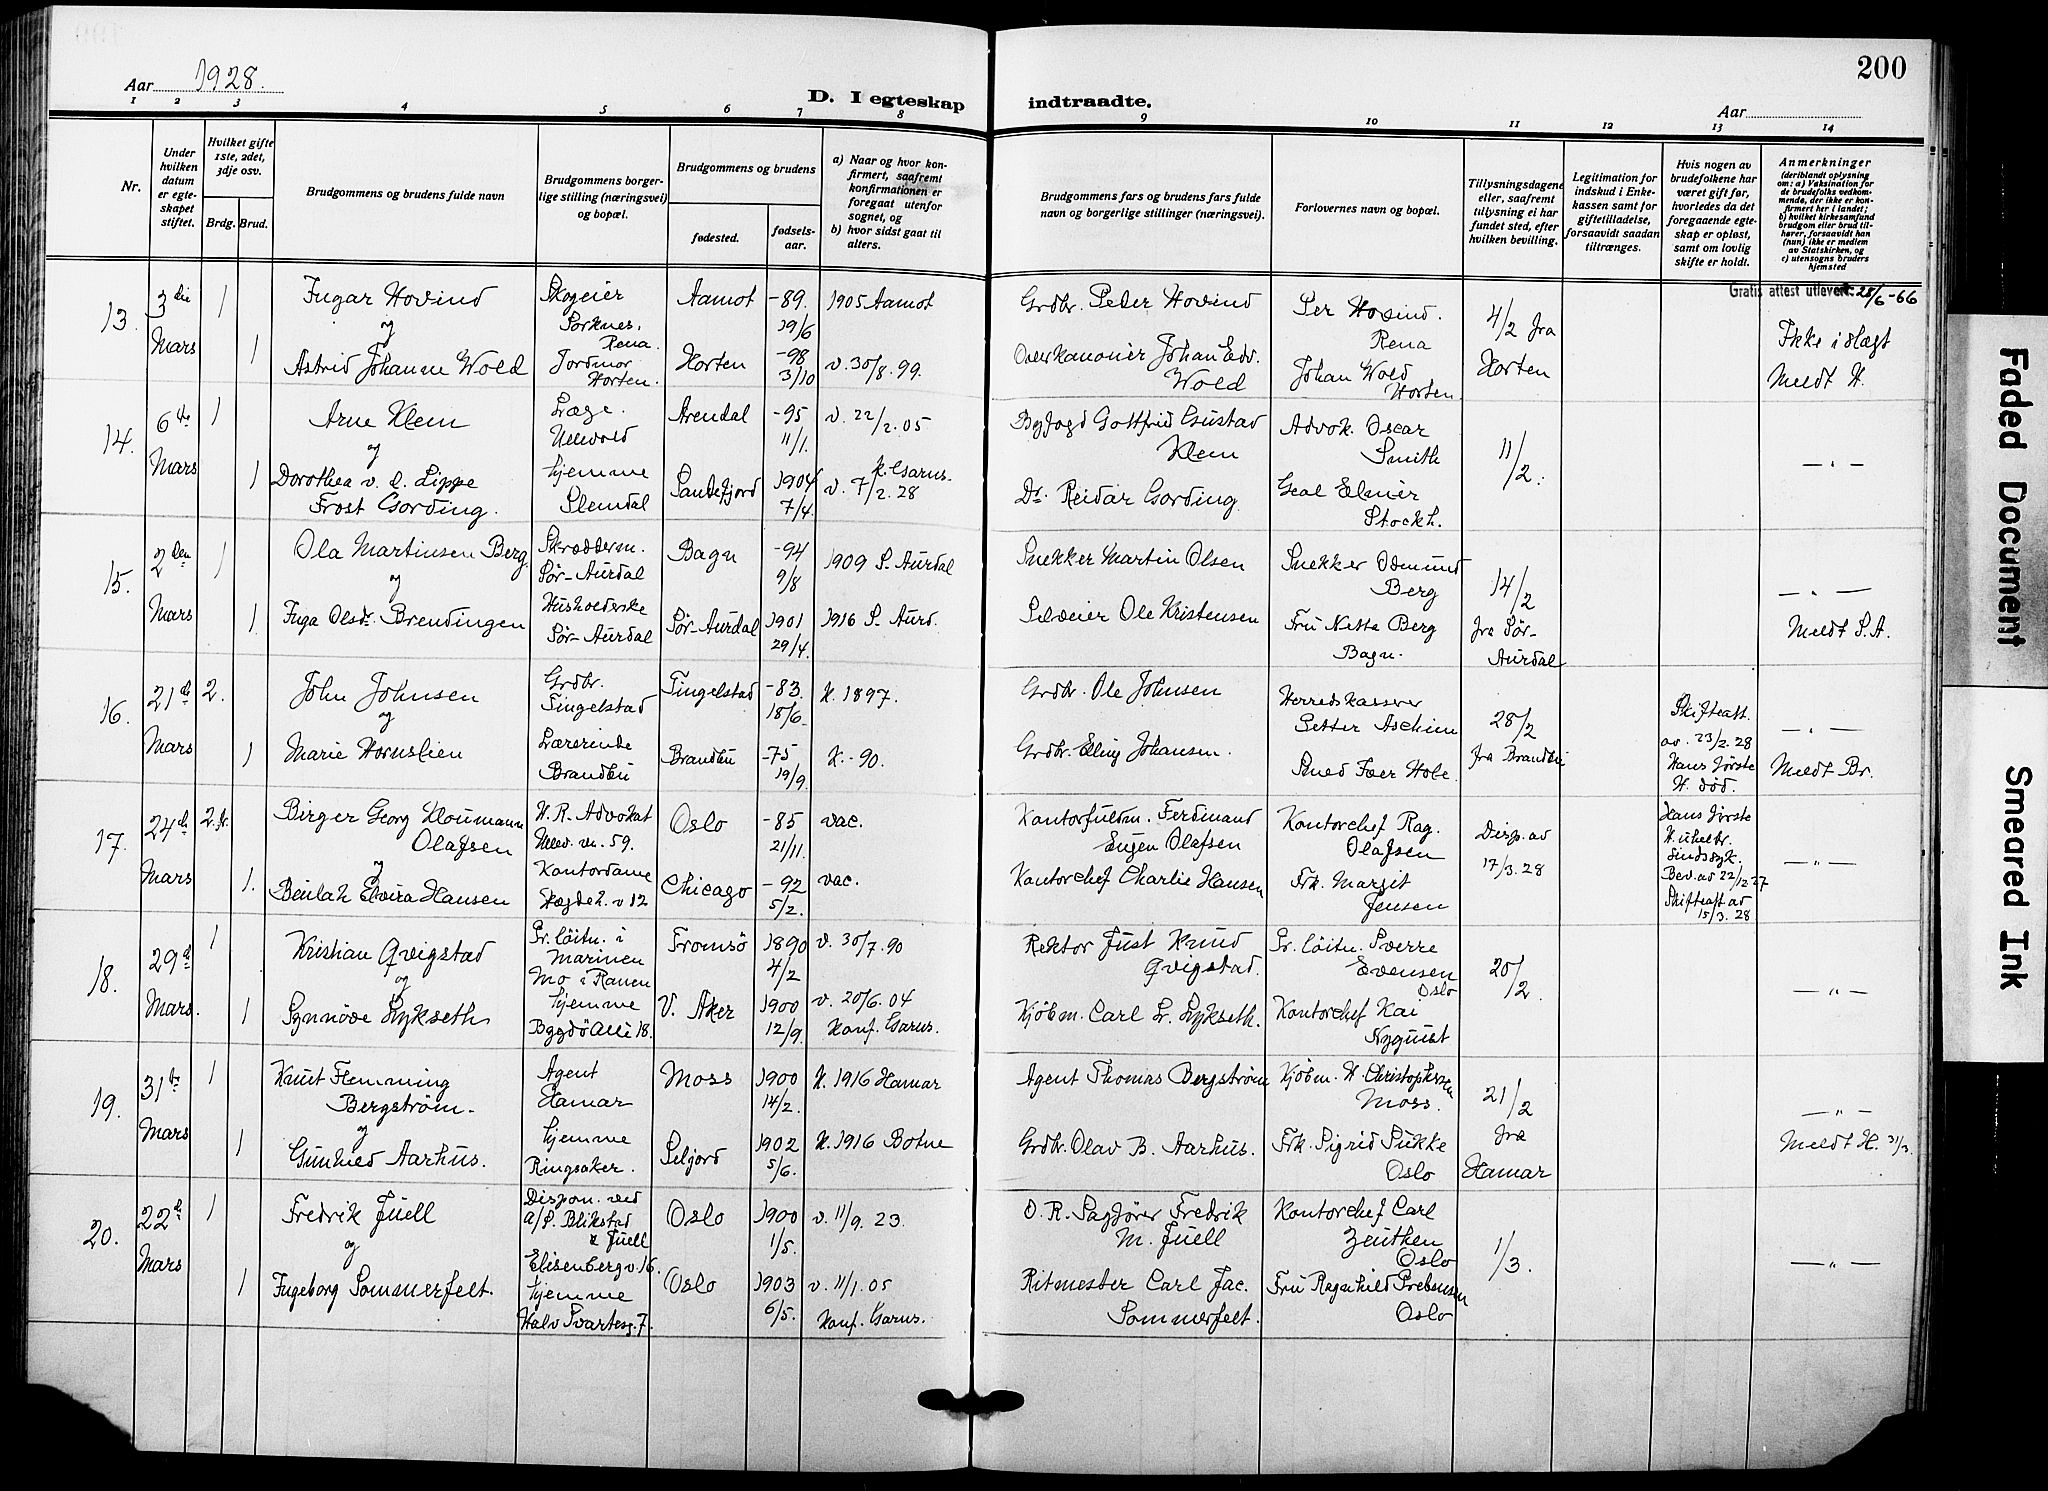 200
Aar 1928.
D. I egteskap indtraadte.
Aar
1 2 3 4 5 6 7 8 9 10 11 12 13 14
Nr.
Under
hvilken
datum
er egte-
skapet
stiftet.
Hvilket gifte
1ste, 2det,
3dje osv.
Brdg. Brud.
Brudgommens og brudens fulde navn
Brudgommens borger-
lige stilling (næringsvei)
og bopæl.
Brudgommens og brudens
fødested.
fødsels-
aar.
a) Naar og hvor kon-
firmert, saafremt
konfirmationen er
foregaat utenfor
sognet, og
b) hvor sidst gaat til
alters.
Brudgommens fars og brudens fars fulde
navn og borgerlige stillinger (næringsvei).
Forlovernes navn og bopæl.
Tillysningsdagene
eller, saafremt
tillysning ei har
fundet sted, efter
hvilken bevilling.
Legitimation for
indskud i Enke-
kassen samt for
giftetilladelse,
forsaavidt saadan
tiltrænges.
Hvis nogen av
brudefolkene har
været gift før,
hvorledes da det
foregaaende egte-
skap er opløst,
samt om lovlig
skifte er holdt.
Anmerkninger
(deriblandt oplysning
om: a) Vaksination for
de brudefolks vedkom-
mende, der ikke er kon-
firmert her i landet;
b) hvilket kirkesamfund
brudgom eller brud til-
hører, forsaavidt han
(hun) ikke er medlem
av Statskirken, og
c) utensogns bruders
hjemsted
Gratis attest utlevert: 28/6-66
13.
3die
Mars
1
1
Ingar Hovind
og
Astrid Johanne Wold
Skogeier
Sorknes.
Rena
Jordmor
Horten.
Aamot
Horten
-89.
19/6
-98
3/10
1905 Aamot
v. 30/8. 99.
Grdbr. Peder Hovind
Overkanonier Johan Edv.
Wold
Per Hovind.
Rena
Johan Wold
Horten
4/2 fra
Horten
Ikke i slegt
Meldt H.
14.
6te
Mars
1
1
Arne Klem
og
Dorothea v. d. Lippe
Frost Gording.
Læge.
Ullevold
hjemme
Slemdal
Arendal
Sandefjord
-95
11/1.
1904
7/4.
v. 22/2. 05
k. Garns.
v. 7/2. 28
Byfogd Gottfried Gustad
Klem
Dr. Reidar Gording.
Advok. Oscar
Smith
Stockh.
11/2.
— „ —
15.
2den
Mars
1
1.
Ola Martinsen Berg
og
Inga Olsdr. Brendingen
Skrædderm.
Sør-Aurdal
Husholderske
Sør-Aurdal
Bagn
Sør-Aurdal
-94
9/8
1901
29/4.
1909 S. Aurdal
1916 S. Aurd.
Snekker Martin Olsen
Selveier Ole Kristensen
Snekker Odmund
Berg
Fru Netta Berg
Bagn.
14/2
fra Sør-
Aurdal
— „ —
Meldt S. A.
16.
21de
Mars
2.
1
John Johnsen
og
Marie Hornslien
Grdbr.
Tingelstad
Lærerinde
Brandbu
Tingelstad
Brandbu
-83.
18/6.
-75
19/9.
K. 1897.
K. -90.
Grdbr. Ole Johnsen
Grdbr. Elling Johansen.
Herredskasserer
Petter Aschim
28/2
fra Brandbu
Skifteatt.
av. 23/2. 28
Hans første
H. død.
— „ —
Meldt Br.
17.
24de
Mars
2.
1.
Birger Georg Houmann
Olafsen
og
Beulah Elvira Hansen
H. R. Advokat
Ullev. vn. 59.
Kontordame
Hægdeh. v 12
Oslo
Chicago
-85
21/11.
-92
5/2.
vac.
vac.
Kontorfuldm. Ferdinand
Eugen Olafsen
Kontorchef Charlie Hansen
Kontorchef Rag.
Olafsen
Frk. Margit
Jensen
Disp. av
17/3. 28
Hans første
H. uhelbr.
sindssyk.
Bev. av 22/12 27
Skifteatt av
15/3. 28
— „ —
18.
29de
Mars.
1
1
Kristian Qvigstad
og
Synnöve Lykseth
Pr. löitn. i
Marinen
Mo i Ranen
hjemme
Bygdö Alle 18.
Tromsö
V. Aker
1890
4/2
1900
12/9.
v. 30/7. 90
v. 20/6. 04
Konf. Garns.
Rektor Just Knud
Qvigstad.
Kjöbm. Carl L. Lykseth.
Pr. löitn. Sverre
Evensen
Oslo
Kontorchef Kai
Nyquist
20/2.
— „ —
19.
31te
Mars
1
1
Knut Flemming
Bergström.
og
Gunhild Aarhus.
Agent
Hamar
hjemme
Ringsaker.
Moss
Seljord
1900
14/2.
1902
5/6.
K. 1916 Hamar
K. 1916 Botne
Agent Thomas Bergström
Grdbr. Olav B. Aarhus.
Kjöbm. H. Christophersen
Moss.
Frk. Sigrid Sukke
Oslo
21/2
fra
Hamar
— „ —
Meldt H. 31/3.
20.
22de
Mars
1
1
Fredrik Juell
og
Ingeborg Sommerfelt.
Dispon. ved
A/S. Blikstad
& Juell
Elisenberg v. 16.
hjemme
Halv Svartesg. 7.
Oslo
Oslo
1900
1/5.
1903
6/5.
v. 11/9. 23.
v. 11/1. 05
Konf. Garns.
O. R. Sagförer Fredrik
M. Juell
Ritmester Carl Jac.
Sommerfelt.
Kontorchef Carl
Zeuthen
Oslo
Fru Ragnhild Prebensen
Oslo
1/3.
— „ —
Faded Document
Smeared Ink